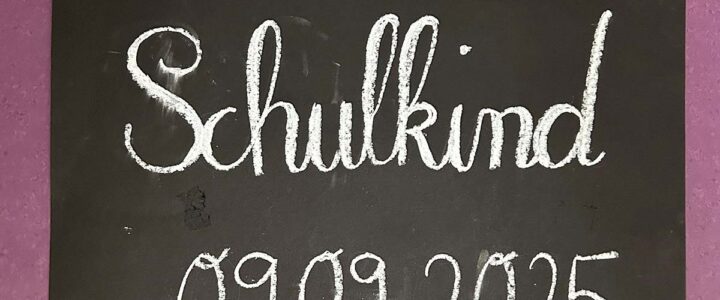 Schulkind
09.09.2025